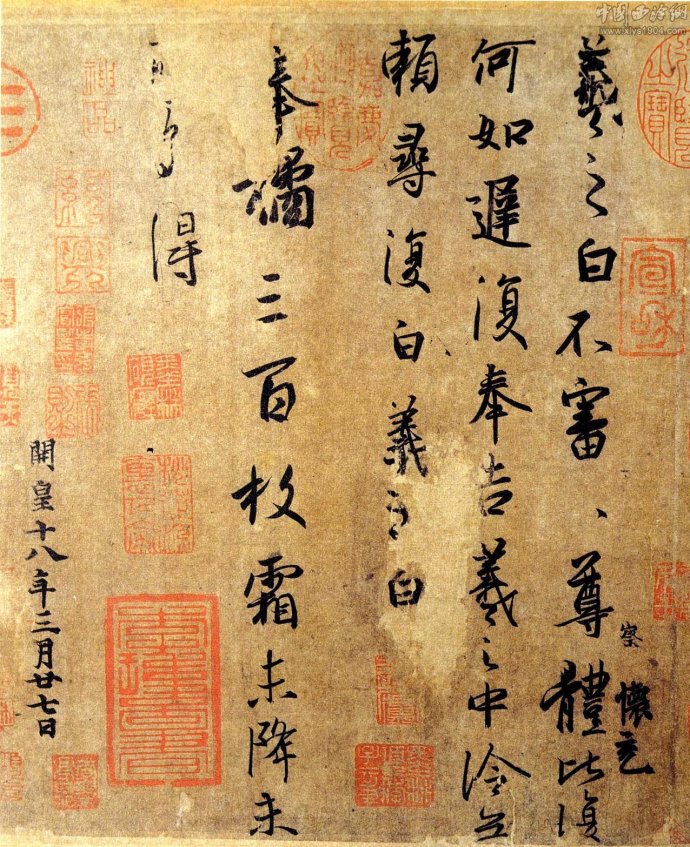 中国西泠网
www.xlys1904.com
羲之白不審、尊體比復
察 懷充
何如遲復奉告羲之中冷無
賴尋復白羲之白
奉橘三百枚霜未降未
可多得
開皇十八年三月廿七日
宣和
神品